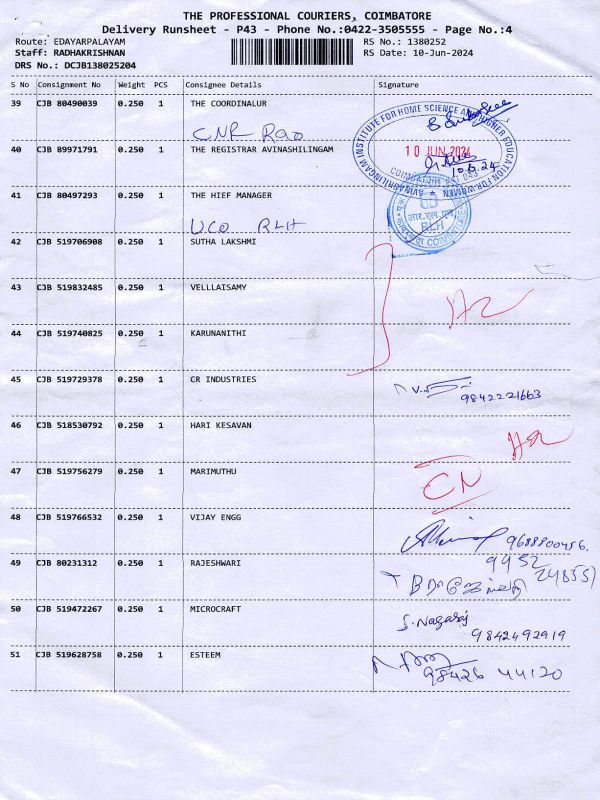 THE PROFESSIONAL COURIERS, COIMBATORE
Delivery Runsheet - P43 - Phone No.:0422-3505555 - Page No.:4
Route: EDAYARPALAYAM RS No.: 1380252
Staff: RADHAKRISHNAN RS Date: 10-Jun-2024
DRS No.: DCJB138025204
S No Consignment No Weight PCS Consignee Details Signature
39 CJB 80490039 0.250 1 THE COORDINALUR
CNR Rao
40 CJB 89971791 0.250 1 THE REGISTRAR AVINASHILINGAM
AVINASHILINGAM INSTITUTE FOR HOME SCIENCE AND HIGHER EDUCATION FOR WOMEN
10 JUN 2024
10.6.24
41 CJB 80497293 0.250 1 THE HIEF MANAGER
UCO RLH
आर.एल.एच
RLH
COIMBATORE
42 CJB 519706908 0.250 1 SUTHA LAKSHMI
43 CJB 519832485 0.250 1 VELLLAISAMY
44 CJB 519740825 0.250 1 KARUNANITHI
45 CJB 519729378 0.250 1 CR INDUSTRIES
9842221663
46 CJB 518530792 0.250 1 HARI KESAVAN
47 CJB 519756279 0.250 1 MARIMUTHU
CN
48 CJB 519766532 0.250 1 VIJAY ENGG
9688800456.
49 CJB 80231312 0.250 1 RAJESHWARI
9952
24855
50 CJB 519472267 0.250 1 MICROCRAFT
S. Nagaraj
9842492919
51 CJB 519628758 0.250 1 ESTEEM
98426 44120